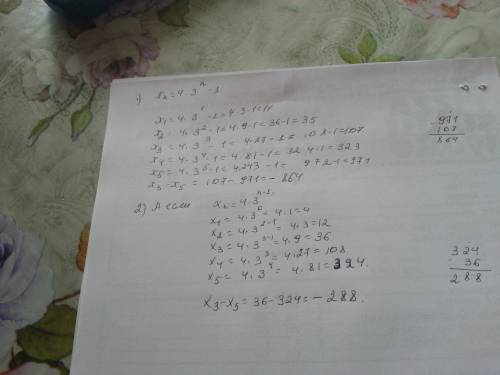 1) xₙ = 4·3ⁿ - 1
x₁ = 4·3¹ - 1 = 4·3-1 = 11
x₂ = 4·3²-1 = 4·9-1 = 36-1 = 35
x₃ = 4·3³ - 1 = 4·27-1 = 108-1 = 107
x₄ = 4·3⁴-1 = 4·81-1 = 324-1 = 323
x₅ = 4·3⁵-1 = 4·243-1 = 972-1 = 971
x₃ - x₅ = 107 - 971 = - 864
-971
107
864
2) А если xₙ = 4·3ⁿ⁻¹
x₁ = 4·3⁰ = 4·1 = 4
x₂ = 4·3²⁻¹ = 4·3 = 12
x₃ = 4·3³⁻¹ = 4·9 = 36
x₄ = 4·3³ = 4·27 = 108
x₅ = 4·3⁴ = 4·81 = 324.
x₃ - x₅ = 36 - 324 = - 288.
324
- 36
288